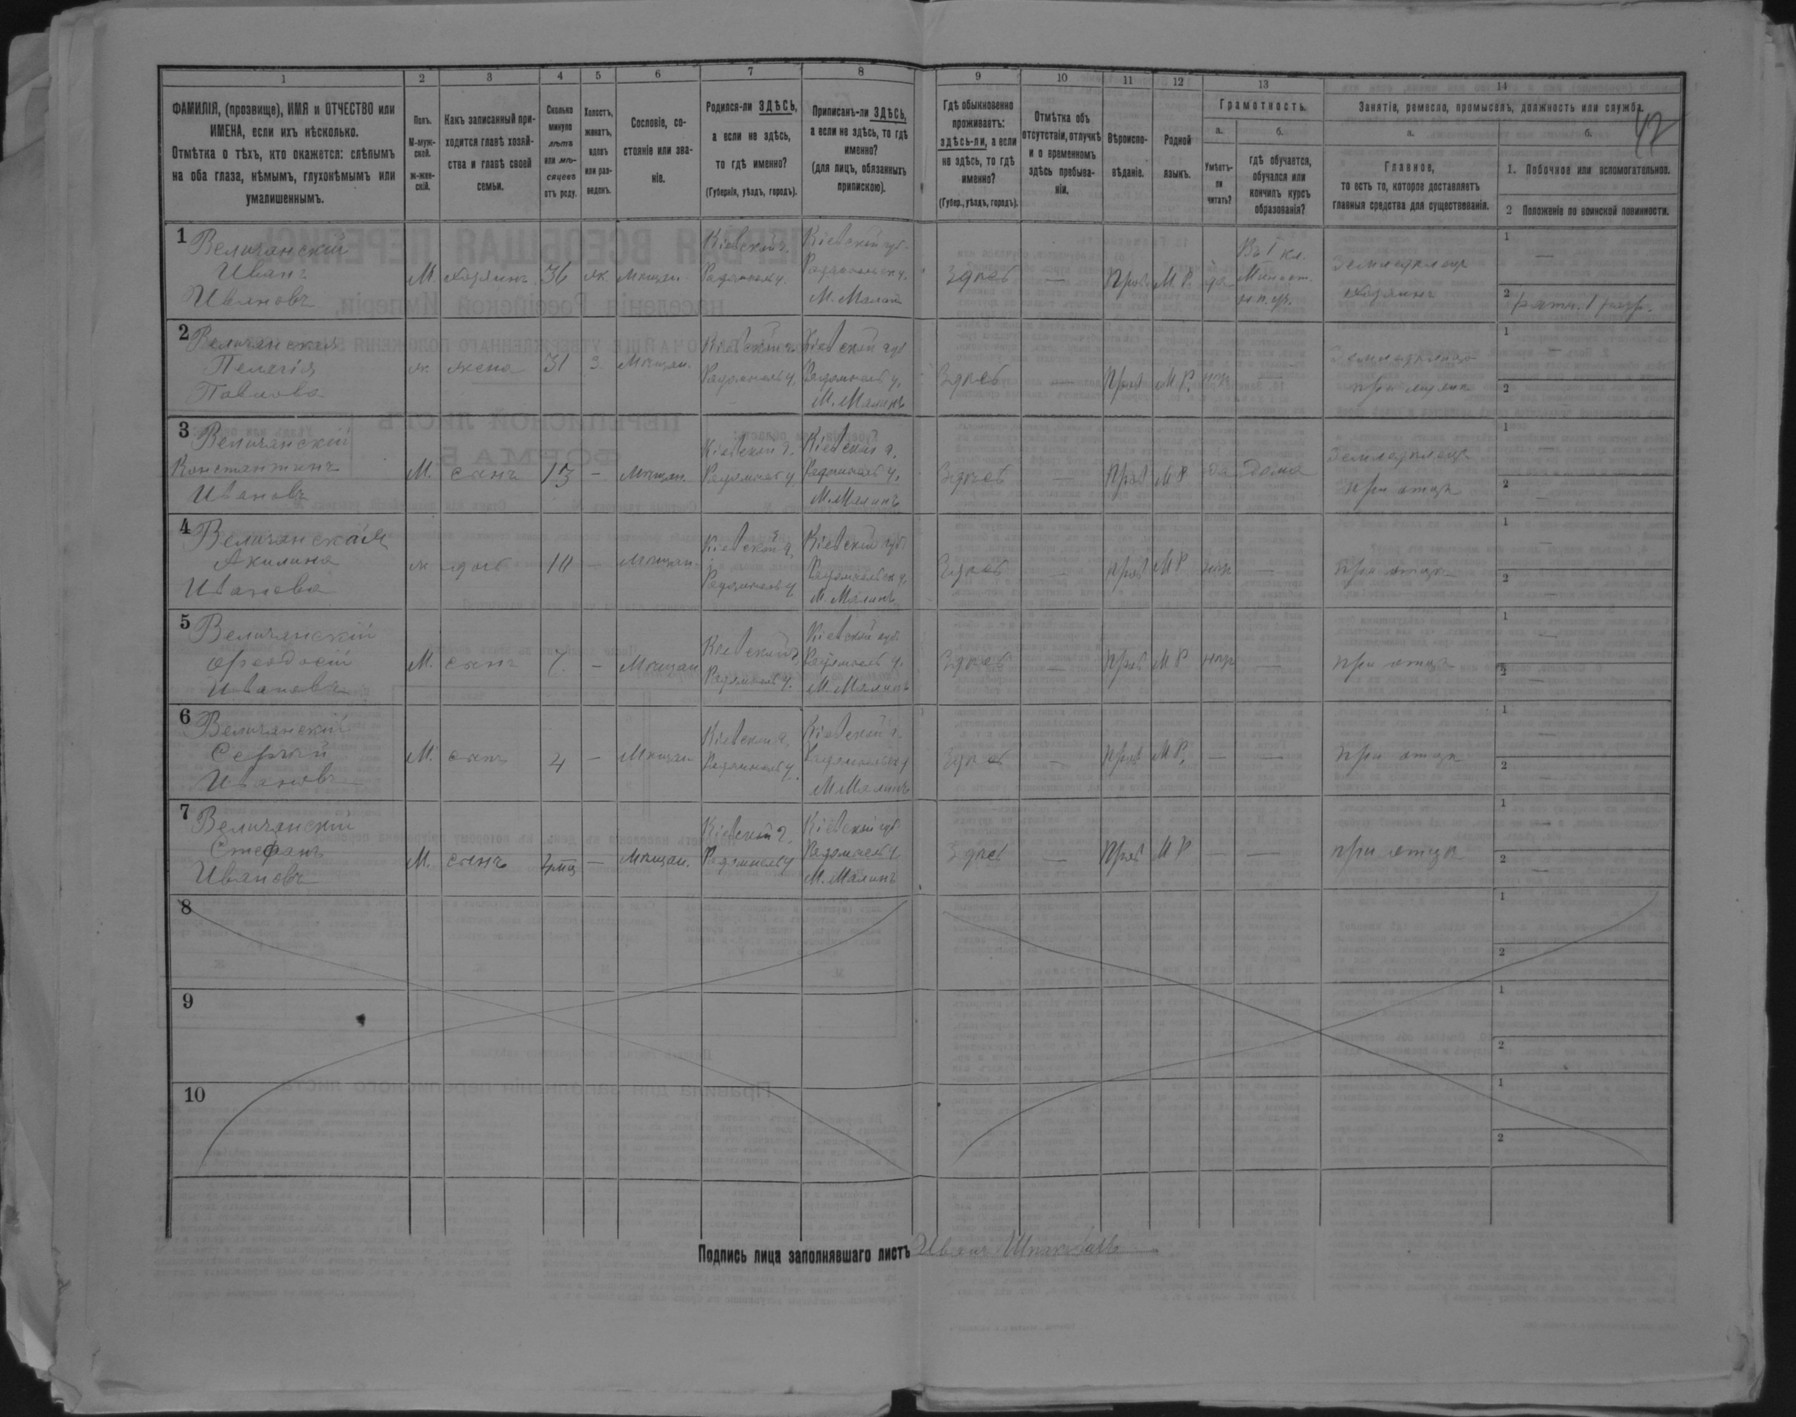 1 2 3 4 5 6 7 8 9 10 11 12 13 14
42
ФАМИЛІЯ, (прозвище), ИМЯ и ОТЧЕСТВО или
ИМЕНА, если ихъ нѣсколько.
Отмѣтка о тѣхъ, кто окажется: слѣпымъ
на оба глаза, нѣмымъ, глухонѣмымъ или
умалишеннымъ.
Полъ.
М-муж-
ской.
ж-жен-
скій.
Какъ записанный при-
ходится главѣ хозяй-
ства и главѣ своей
семьи.
Сколько
минуло
лѣтъ
или мѣ-
сяцевъ
отъ роду.
Холостъ,
женатъ,
вдовъ
или раз-
веденъ.
Сословіе, со-
стояніе или зва-
ніе.
Родился-ли ЗДѢСЬ,
а если не здѣсь,
то гдѣ именно?
(Губернія, уѣздъ, городъ).
Приписанъ-ли ЗДѢСЬ,
а если не здѣсь, то гдѣ
именно?
(для лицъ, обязанныхъ
припискою).
Гдѣ обыкновенно
проживаетъ:
здѣсь-ли, а если
не здѣсь, то гдѣ
именно?
(Губер., уѣздъ, городъ).
Отмѣтка объ
отсутствіи, отлучкѣ
и о временномъ
здѣсь пребыва-
ніи.
Вѣроиспо-
вѣданіе.
Родной
языкъ.
Грамотность.
а.
Умѣетъ-
ли
читать?
б.
гдѣ обучается,
обучался или
кончилъ курсъ
образованія?
Занятія, ремесло, промыселъ, должность или служба.
а.
Главное,
то есть то, которое доставляетъ
главныя средства для существованія.
б.
1. Побочное или вспомогательное.
2 Положеніе по воинской повинности.
1
Величанскій
Иванъ
Ивановъ
М. хозяинъ 36 ж. Мѣщан.
Кіевской г.
Радомысл. у.
Кіевской губ.
Радомысльск у.
М. Малинъ
здѣсь — Прав. М. Р. да
Въ 1 кл.
Земледѣлецъ
хозяинъ
1 —
2 ратн. 1 разр.
2
Величанская
Пелагія
Павлова
ж жена 31 з. Мѣщан.
Кіевской г.
Радомысл у.
Кіевской губ
Радомысл у.
М. Малинъ
Здѣсь — Прав М Р. —
при мужѣ
1 —
2
3
Величанскій
Константинъ
Ивановъ
М. сынъ 13 — Мѣщан.
Кіевской г.
Радомысл у
Кіевской г.
Радомысл у.
М. Малинъ
Здѣсь — Прав М Р да дома
Земледѣлецъ
при отцѣ
1 —
2 —
4
Величанская
Акилина
Иванова
ж дочь 10 — Мѣщан
Кіевской г.
Радомысл у
Кіевской губ
Радомысльск у.
М. Малинъ
Здѣсь — Прав М Р —
при отцѣ
1 —
2 —
5
Величанскій
Феодосій
Ивановъ
М. сынъ 7 — Мѣщан
Кіевской г.
Радомысл у.
Кіевской губ
Радомысл у.
М. Малинъ
Здѣсь — Прав М Р —
при отцѣ
1 —
2 —
6
Величанскій
Сергѣй
Ивановъ
М. сынъ 4 — Мѣщан
Кіевской г.
Радомысл у.
Кіевской г.
Радомысльск у
М. Малинъ
Здѣсь — Прав М Р, — —
при отцѣ
1 —
2 —
7
Величанскій
Стефанъ
Ивановъ
М. сынъ — Мѣщан.
Кіевской г.
Радомысл у
Кіевской губ
Радомысл у.
М. Малинъ
Здѣсь — Прав М Р — —
при отцѣ
1 —
2 —
8 1
2
9 1
2
10 1
2
Подпись лица заполнявшаго листъ Иванъ